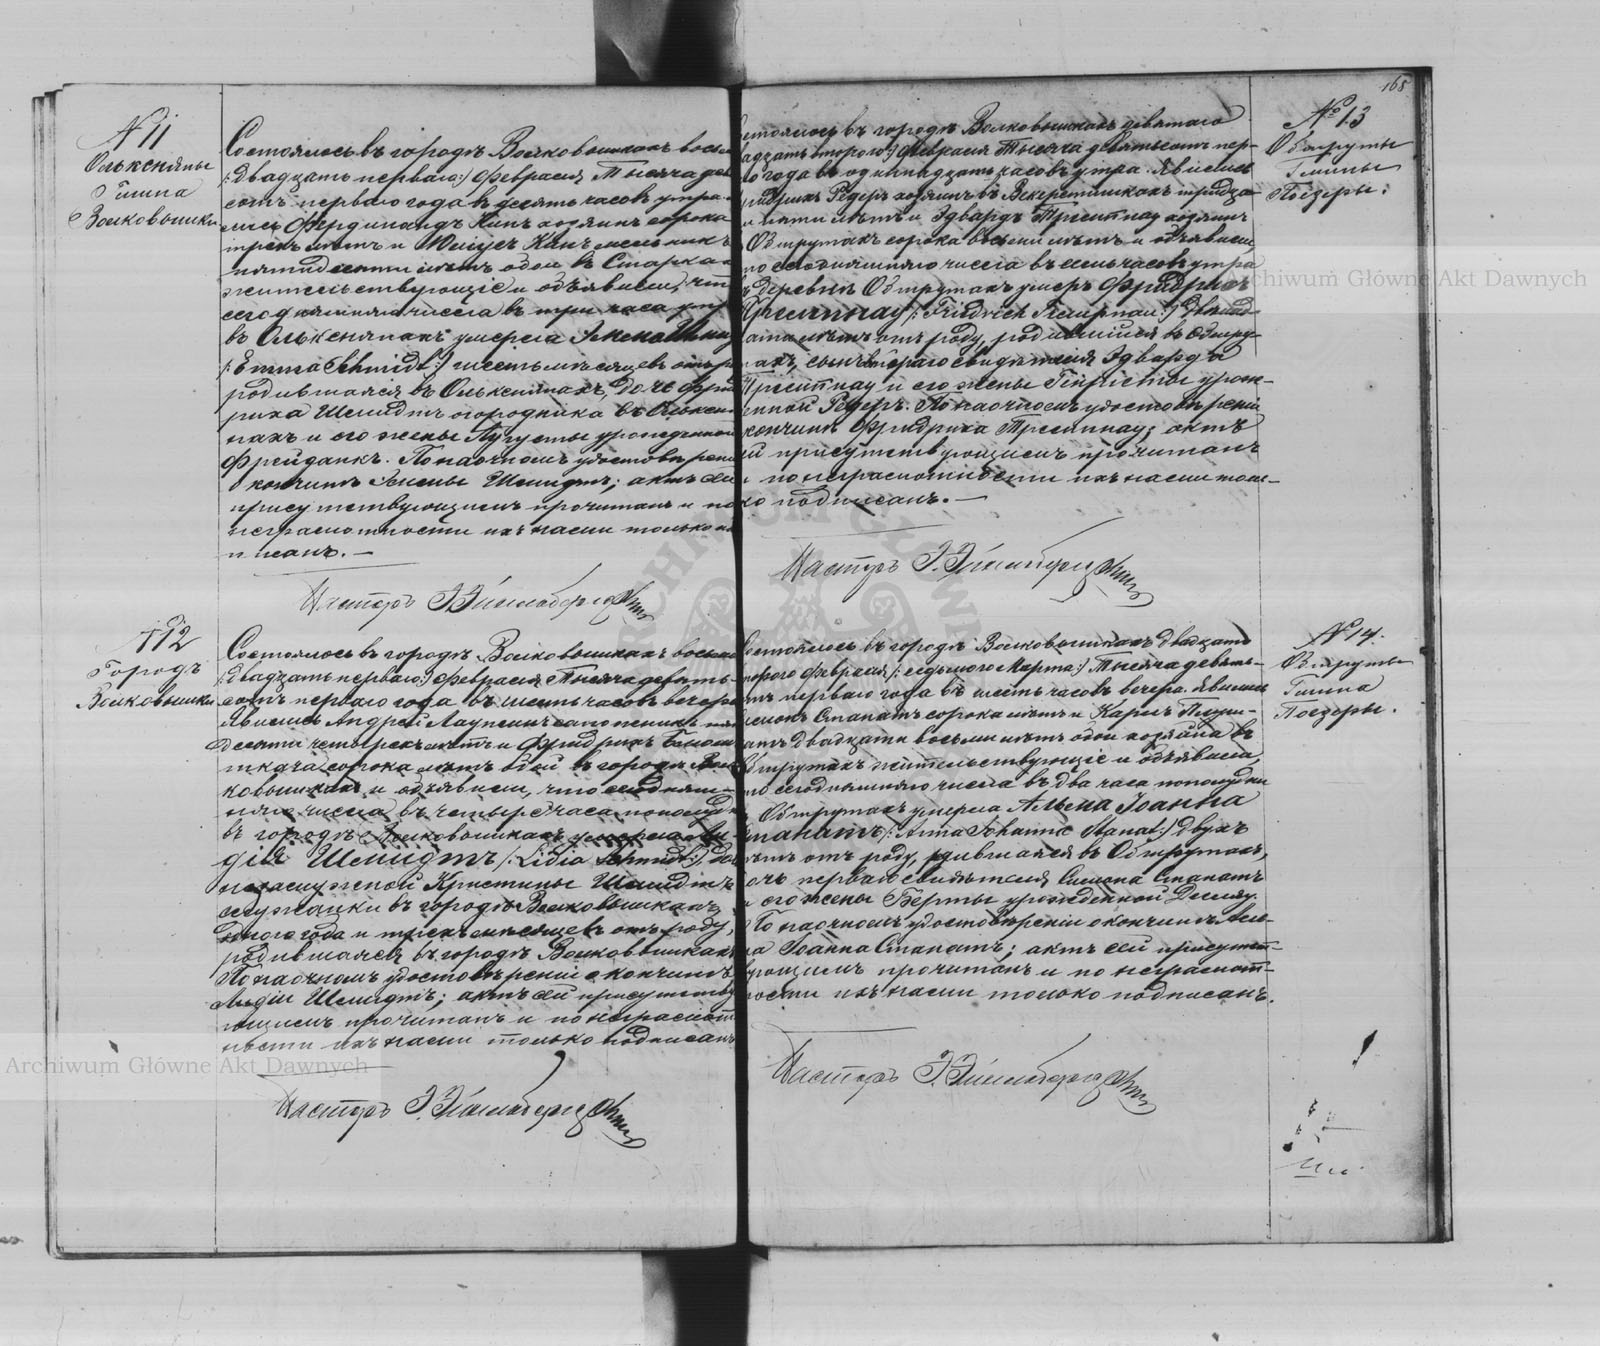 N 11
Ольксняны
Гмина
Волковышки
Состоялось въ городѣ Волковышкахъ восьм
/:двадцать перваго:/ Февраля Тысяча дев
сотъ перваго года въ десять часовъ утра
лись Фердинандъ Канъ хозяинъ сорока
трехъ лѣтъ и Юліусъ Канъ мельникъ
пятидесяти лѣтъ обои въ Старка
жительствующіе и объявили, что
сегодняшняго числа въ три часа утр
въ Ольксняпахъ умерла Эмма Шмид
/:Emma Schmidt:/ шесть мѣсяцевъ отъ р
родившаяся въ Ольксняпахъ, дочь Фрид
риха Шмидтъ огородника въ Ольксн
нахъ и его жены Аугусты урожденной
Фрейданкъ. По наочномъ удостовѣрені
о кончинѣ Эммы Шмидтъ; актъ сей
присутствующимъ прочитанъ и по
неграмотности ихъ нами только по
писанъ. —
Пасторъ
N 12
Городъ
Волковышки
Состоялось въ городѣ Волковышкахъ восьм
/:двадцать перваго:/ Февраля Тысяча девять-
сотъ перваго года въ шесть часовъ вечера
Явились Андрей сапожникъ пя
десяти четырехъ лѣтъ и Фридрихъ
ткачъ сорока лѣтъ обои въ городѣ Вол
ковышкахъ и объявили, что сегодняш-
няго числа въ четыре часа пополудн
въ городѣ Волковышкахъ умерла Ли-
дія Шмидтъ /:Lidia Schmidt:/, доч
незамужной Кристины Шмидтъ
служанки въ городѣ Волковышкахъ,
одного года и трехъ мѣсяцевъ отъ роду,
родившаяся въ городѣ Волковышкахъ
По наочномъ удостовѣреніи о кончинѣ
Лидіи Шмидтъ; актъ сей присутству
ющимъ прочитанъ и по неграмот
ности ихъ нами только подписанъ
Пасторъ
168
№ 13
Обшруты
Гмины
Поезеры.
стоялось въ городѣ Волковышкахъ девятаго
вадцать втораго:/ Февраля Тысяча девятьсотъ пер-
го года въ одиннадцать часовъ утра. Явились
ридрихъ Редеръ хозяинъ въ тридца
и пяти лѣтъ и Эдвардъ Тремпнау хозяинъ
Обшрутахъ сорока восьми лѣтъ и объявили
то сегодняшняго числа въ семь часовъ утра
деревнѣ Обшрутахъ умеръ Фридрихъ
Тремпнау /:Friedrich Trempnau:/ двѣнад-
ати лѣтъ отъ роду, родившійся въ Обшру-
тахъ, сынъ втораго свидѣтеля Эдварда
Тремпнау и его жены Генріеты урож-
енной Редеръ. По наочномъ удостовѣреніи
кончинѣ Фридриха Тремпнау; актъ
й присутствующимъ прочитанъ
и по неграмотности ихъ нами толь-
ко подписанъ. —
Пасторъ
№ 14.
Обшруты
Гмина
Поезеры.
Состоялось въ городѣ Волковышкахъ двадцать
торого Февраля /:седьмого Марта:/ Тысяча девять-
тъ перваго года въ шесть часовъ вечера. Явились
имонъ Станатъ сорока лѣтъ и Карлъ
атъ двадцати восьми лѣтъ обои хозяева въ
Обшрутахъ жительствующіе и объявили,
то сегодняшняго числа въ два часа пополудни
Обшрутахъ умерла Альма Іоанна
танатъ /:Alma Johanna Stanat:/ двухъ
ѣтъ отъ роду, родившаяся въ Обшрутахъ,
очь перваго свидѣтеля Симона Станатъ
и его жены Берты урожденной
По наочномъ удостовѣреніи о кончинѣ Аль-
ма Іоанна Станатъ; актъ сей присутст-
вующимъ прочитанъ и по неграмот-
ности ихъ нами только подписанъ.
Пасторъ
Archiwum Główne Akt Dawnych
Archiwum Główne Akt Dawnych